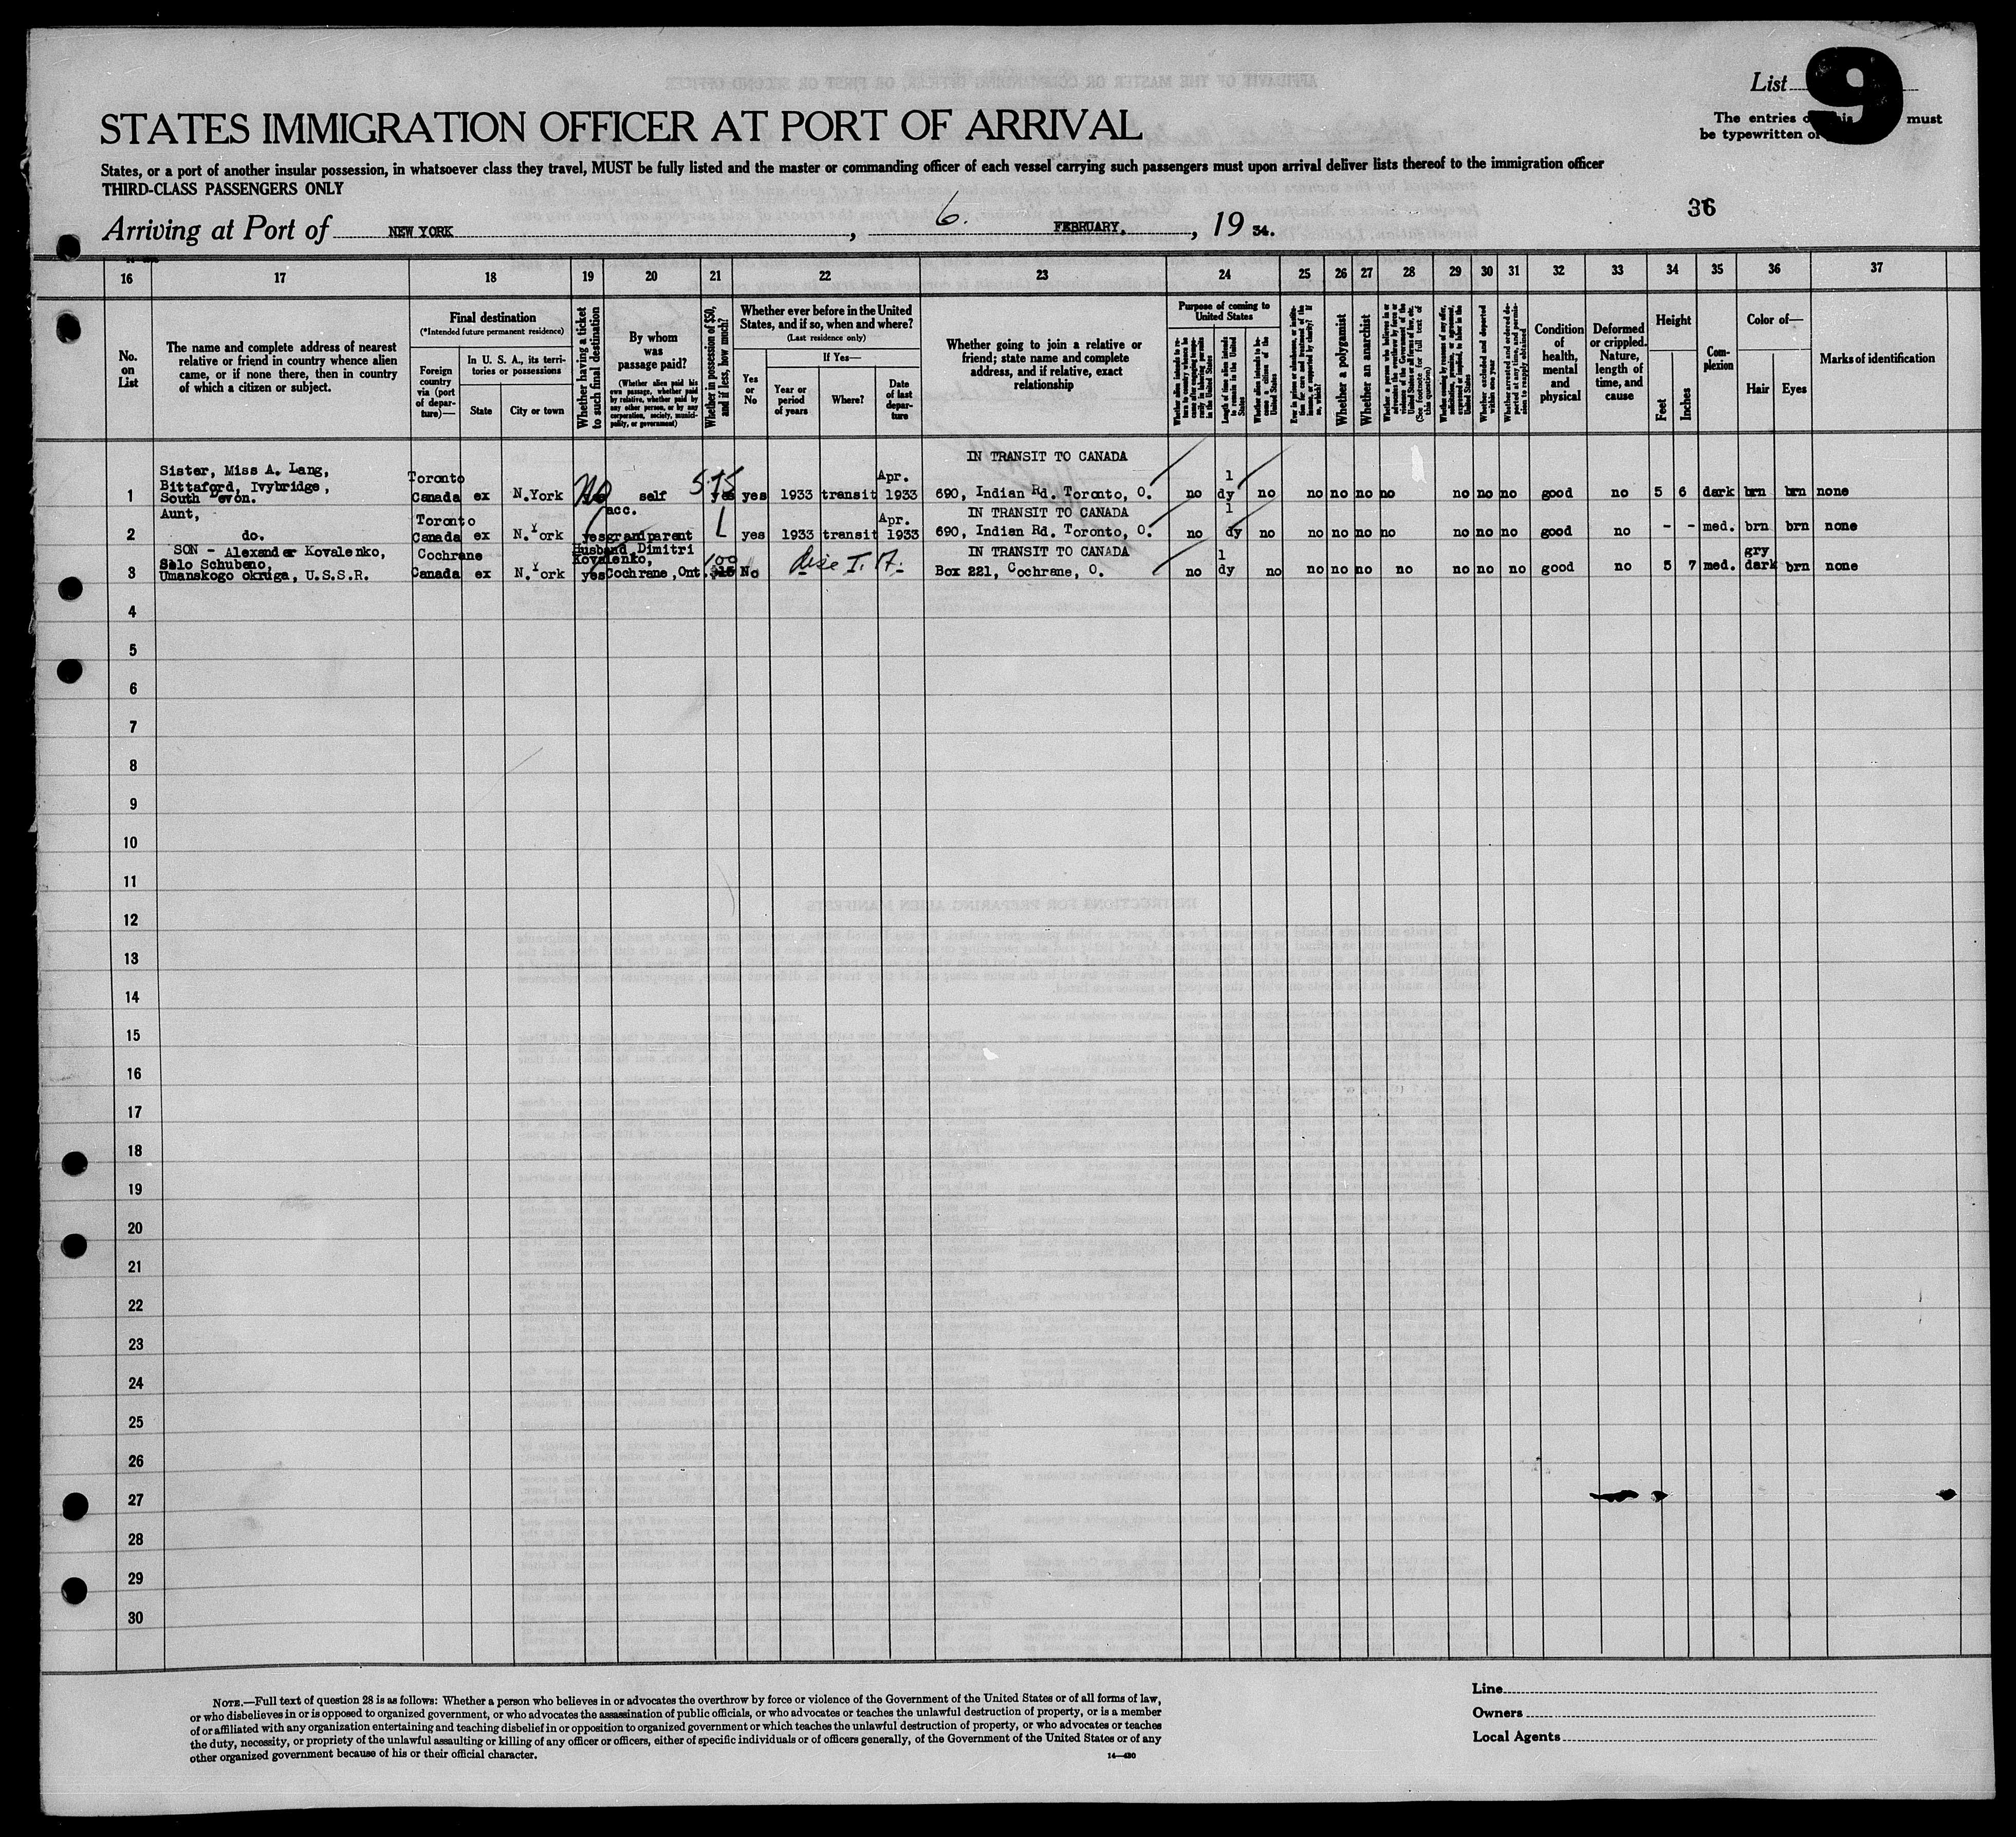 List 9
STATES IMMIGRATION OFFICER AT PORT OF ARRIVAL
The entries must
be typewritten
States, or a port of another insular possession, in whatsoever class they travel, MUST be fully listed and the master or commanding officer of each vessel carrying such passengers must upon arrival deliver lists thereof to the immigration officer
THIRD-CLASS PASSENGERS ONLY
36
Arriving at Port of NEW YORK , 6. FEBRUARY. , 19 34.
16 17 18 19 20 21 22 23 24 25 26 27 28 29 30 31 32 33 34 35 36 37
No. on List
The name and complete address of nearest relative or friend in country whence alien came, or if none there, then in country of which a citizen or subject.
Final destination
(*Intended future permanent residence)
Foreign country via (port of departure)—
In U. S. A., its territories or possessions
State
City or town
Whether having a ticket to such final destination
By whom was passage paid?
(Whether alien paid his own passage, whether paid by relative, whether paid by any other person, or by any corporation, society, municipality, or government)
Whether in possession of $50, and if less, how much?
Whether ever before in the United States, and if so, when and where?
(Last residence only)
Yes or No
If Yes—
Year or period of years
Where?
Date of last departure
Whether going to join a relative or friend; state name and complete address, and if relative, exact relationship
Purpose of coming to United States
Whether alien intends to return to country whence he came after engaging temporarily in laboring pursuits in the United States
Length of time alien intends to remain in the United States
Whether alien intends to become a citizen of the United States
Whether a polygamist
Whether an anarchist
(See footnote for full text of this question)
Whether excluded and deported within one year
Whether arrested and ordered deported at any time, and permission to reapply obtained
Condition of health, mental and physical
Deformed or crippled. Nature, length of time, and cause
Height
Feet
Inches
Complexion
Color of—
Hair
Eyes
Marks of identification
IN TRANSIT TO CANADA
Sister, Miss A. Lang,
Bittaford, Ivybridge,
South Devon.
1 Toronto Canada ex N.York No self 575 yes yes 1933 transit Apr. 1933 690, Indian Rd. Toronto, O. no 1 dy no no no no no no no no good no 5 6 dark brn brn none
Aunt,
IN TRANSIT TO CANADA
2 do. Toronto Canada ex N.York yes acc. grandparent yes 1933 transit Apr. 1933 690, Indian Rd. Toronto, O. no 1 dy no no no no no no no no good no - - med. brn brn none
SON - Alexander Kovalenko,
Selo Schubeno,
Umanskogo okruga, U.S.S.R.
IN TRANSIT TO CANADA
3 Cochrane Canada ex N.York yes Husband Dimitri Kovalenko, Cochrane, Ont. 100 $15 No Box 221, Cochrane, O. no 1 dy no no no no no no no no good no 5 7 med. gry dark brn none
4
5
6
7
8
9
10
11
12
13
14
15
16
17
18
19
20
21
22
23
24
25
26
27
28
29
30
NOTE.—Full text of question 28 is as follows: Whether a person who believes in or advocates the overthrow by force or violence of the Government of the United States or of all forms of law,
or who disbelieves in or is opposed to organized government, or who advocates the assassination of public officials, or who advocates or teaches the unlawful destruction of property, or is a member
of or affiliated with any organization entertaining and teaching disbelief in or opposition to organized government or which teaches the unlawful destruction of property, or who advocates or teaches
the duty, necessity, or propriety of the unlawful assaulting or killing of any officer or officers, either of specific individuals or of officers generally, of the Government of the United States or of any
other organized government because of his or their official character.
14—430
Line
Owners
Local Agents